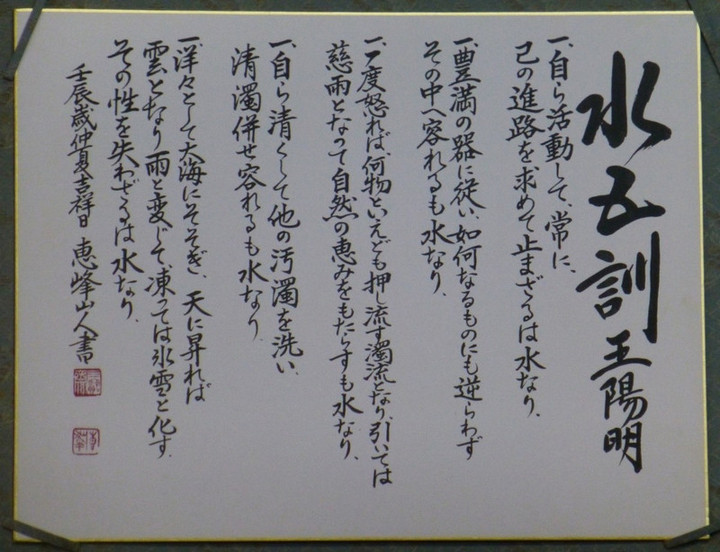 水五訓 王陽明
一、自ら活動して、常に、
己の進路を求めて止まざるは水なり。
一、豊満の器に従い、如何なるものにも逆らわず
その中へ容れるも水なり。
一、一度怒れば、何物といえども押し流す濁流となり、引いては
慈雨となって自然の恵みをもたらすも水なり。
一、自ら清くして他の汚濁を洗い、
清濁併せ容れるも水なり。
一、洋々として大海にそそぎ、天に昇れば
雲となり雨と変じて、凍っては氷雪と化す。
その性を失わざるは水なり。
壬辰歳仲夏吉祥日 恵峰山人書